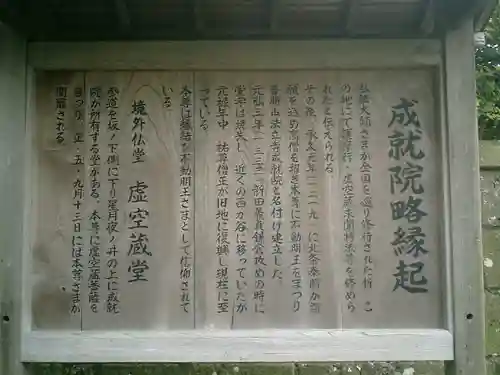 成就院略縁起
弘法大師さまが全国を巡り修行された折 こ
の地にて護摩行・虚空蔵求聞持法等を修めら
れたと伝えられる
その後、承久元年(一二一九)に北条泰時が祈
願を込め高僧を招き本尊に不動明王をまつり
普明山法立寺成就院と名付け建立した。
元弘三年(一三三三)新田義貞鎌倉攻めの時に
堂宇は焼失し、近くの西が谷に移っていたが
元禄年中 祐尊僧正が旧地に復興し現在に至
っている。
本尊は縁結び不動明王さまとして信仰されて
いる
境外仏堂 虚空蔵堂
参道を坂ノ下側に下り星月夜ノ井の上に成就
院が所有する堂がある。本尊に虚空蔵菩薩を
まつり 正、五、九月十三日には本尊さまが
開扉される